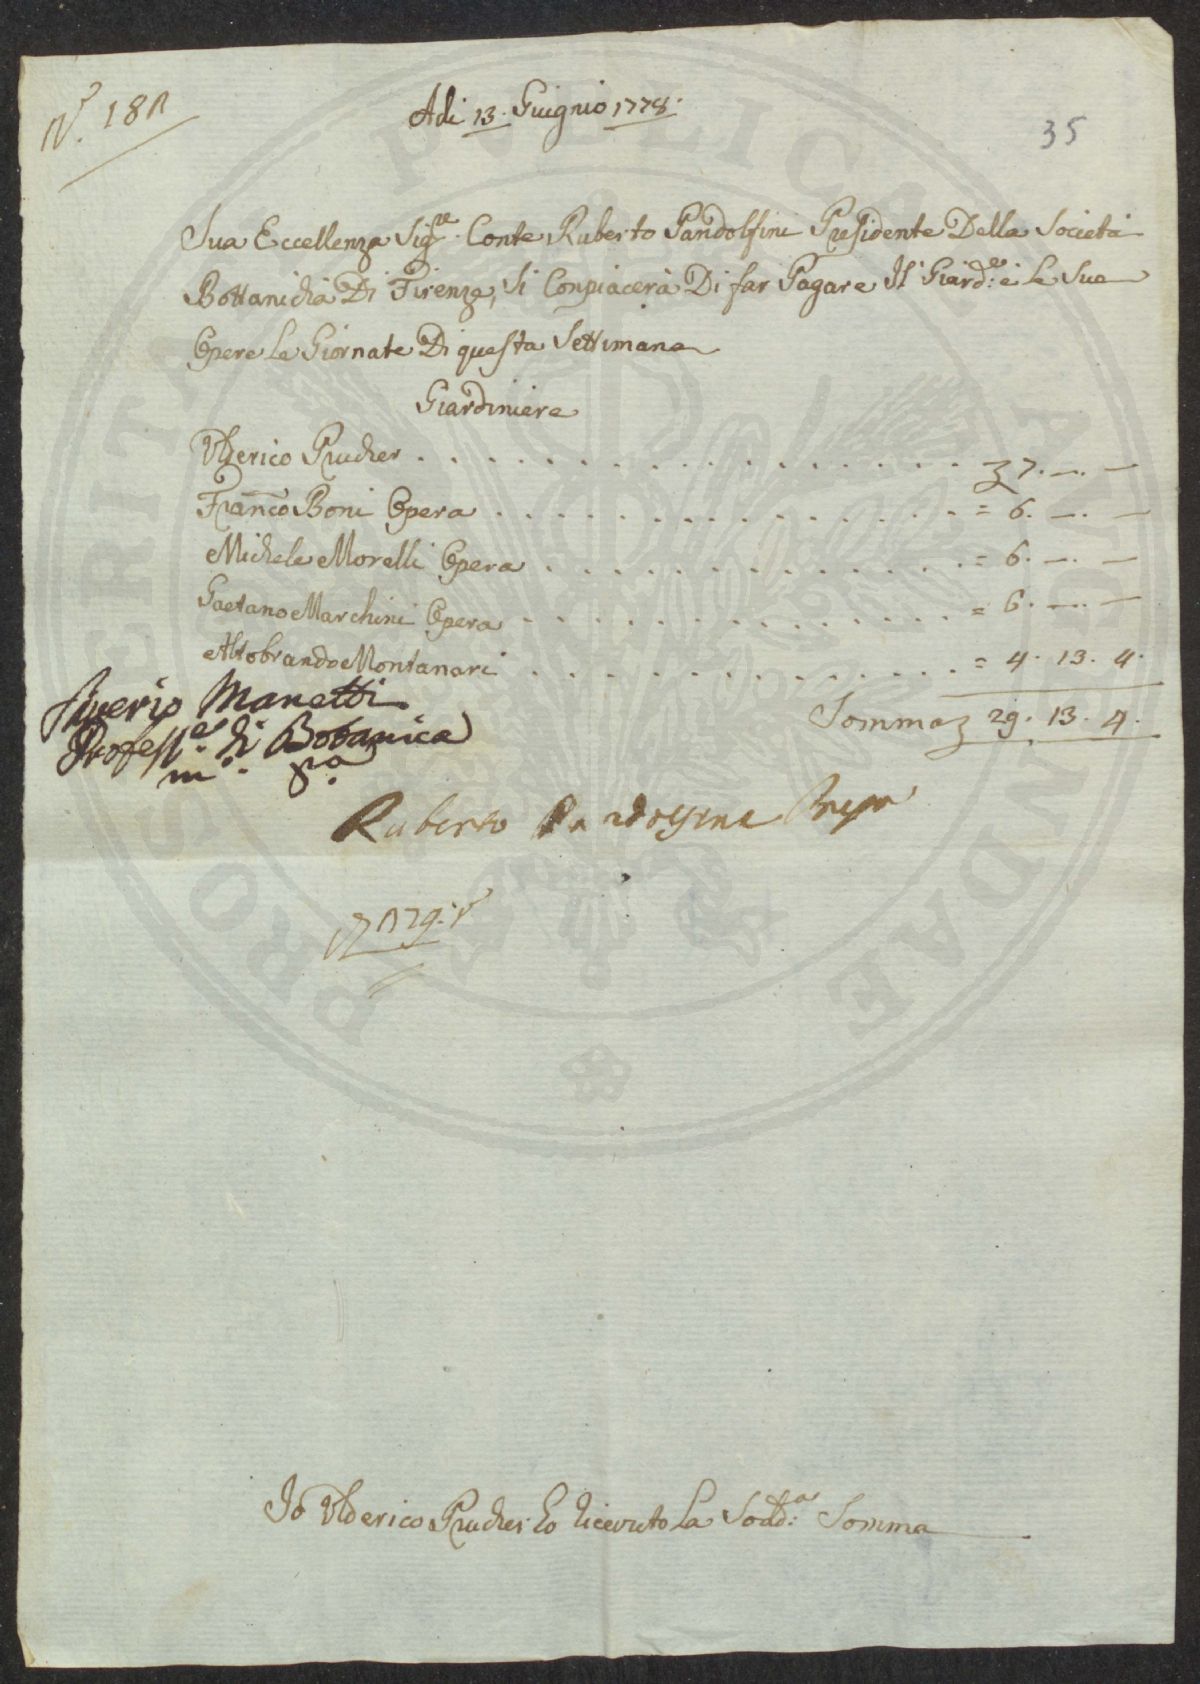 N.º 181
Adi 13. Guignio 1778.
35
Sua Eccellenza Sig.re Conte Ruberto Pandolfini Presidente Della Società
Bottanicha Di Firenze, Si Conpiacerà Di far Pagare Il Giard:e e Le Sua
Opere Le Giornate Di questa Settimana
Giardiniere
Ulderico Prucher . . . . . . . . . . . . . . . . 7. —. —
Franco Boni Opera . . . . . . . . . . . . . . = 6. —. —
Michele Morelli Opera . . . . . . . . . . . . . = 6. —. —
Gaetano Marchini Opera . . . . . . . . . . . . . = 6. —. —
Altobrando Montanari . . . . . . . . . . . . . = 4. 13. 4.
Somma 29. 13. 4.
Saverio Manetti
Profess.e di Botanica
m.o p.a
Ruberto Pandolfini
Io Ulderico Prucher ho riceuto La Sodd:a Somma
PROSPERITATI PUBLICAE AUGENDAE